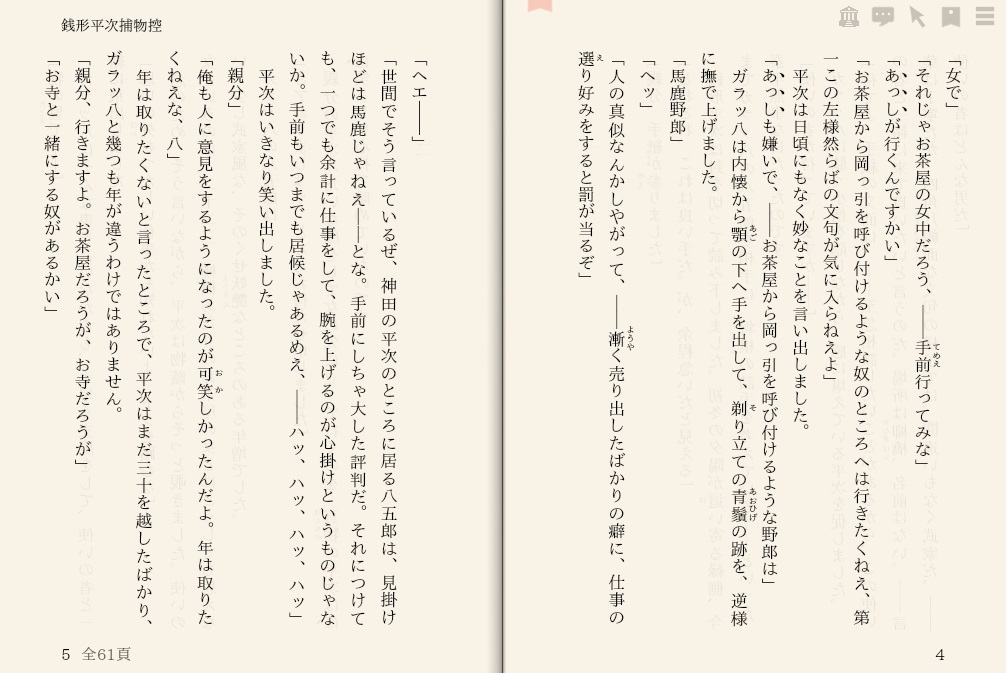 銭形平次捕物控
「女で」
「それじゃお茶屋の女中だろう、――手前行ってみな」
「あっしが行くんですかい」
「お茶屋から岡っ引を呼び付けるような奴のところへは行きたくねえ、第
一この左様然らばの文句が気に入らねえよ」
平次は日頃にもなく妙なことを言い出しました。
「あっしも嫌いで、――お茶屋から岡っ引を呼び付けるような野郎は」
ガラッ八は内懐から顎の下へ手を出して、剃り立ての青鬚の跡を、逆様
に撫で上げました。
「馬鹿野郎」
「ヘッ」
「人の真似なんかしやがって、――漸く売り出したばかりの癖に、仕事の
選り好みをすると罰が当るぞ」
4
「ヘエ――」
「世間でそう言っているぜ、神田の平次のところに居る八五郎は、見掛け
ほどは馬鹿じゃねえ――とな。手前にしちゃ大した評判だ。それにつけて
も、一つでも余計に仕事をして、腕を上げるのが心掛けというものじゃな
いか。手前もいつまでも居候じゃあるめえ、――ハッ、ハッ、ハッ、ハッ」
平次はいきなり笑い出しました。
「親分」
「俺も人に意見をするようになったのが可笑しかったんだよ。年は取りた
くねえな、八」
年は取りたくないと言ったところで、平次はまだ三十を越したばかり、
ガラッ八と幾つも年が違うわけではありません。
「親分、行きますよ。お茶屋だろうが、お寺だろうが」
「お寺と一緒にする奴があるかい」
5 全61頁